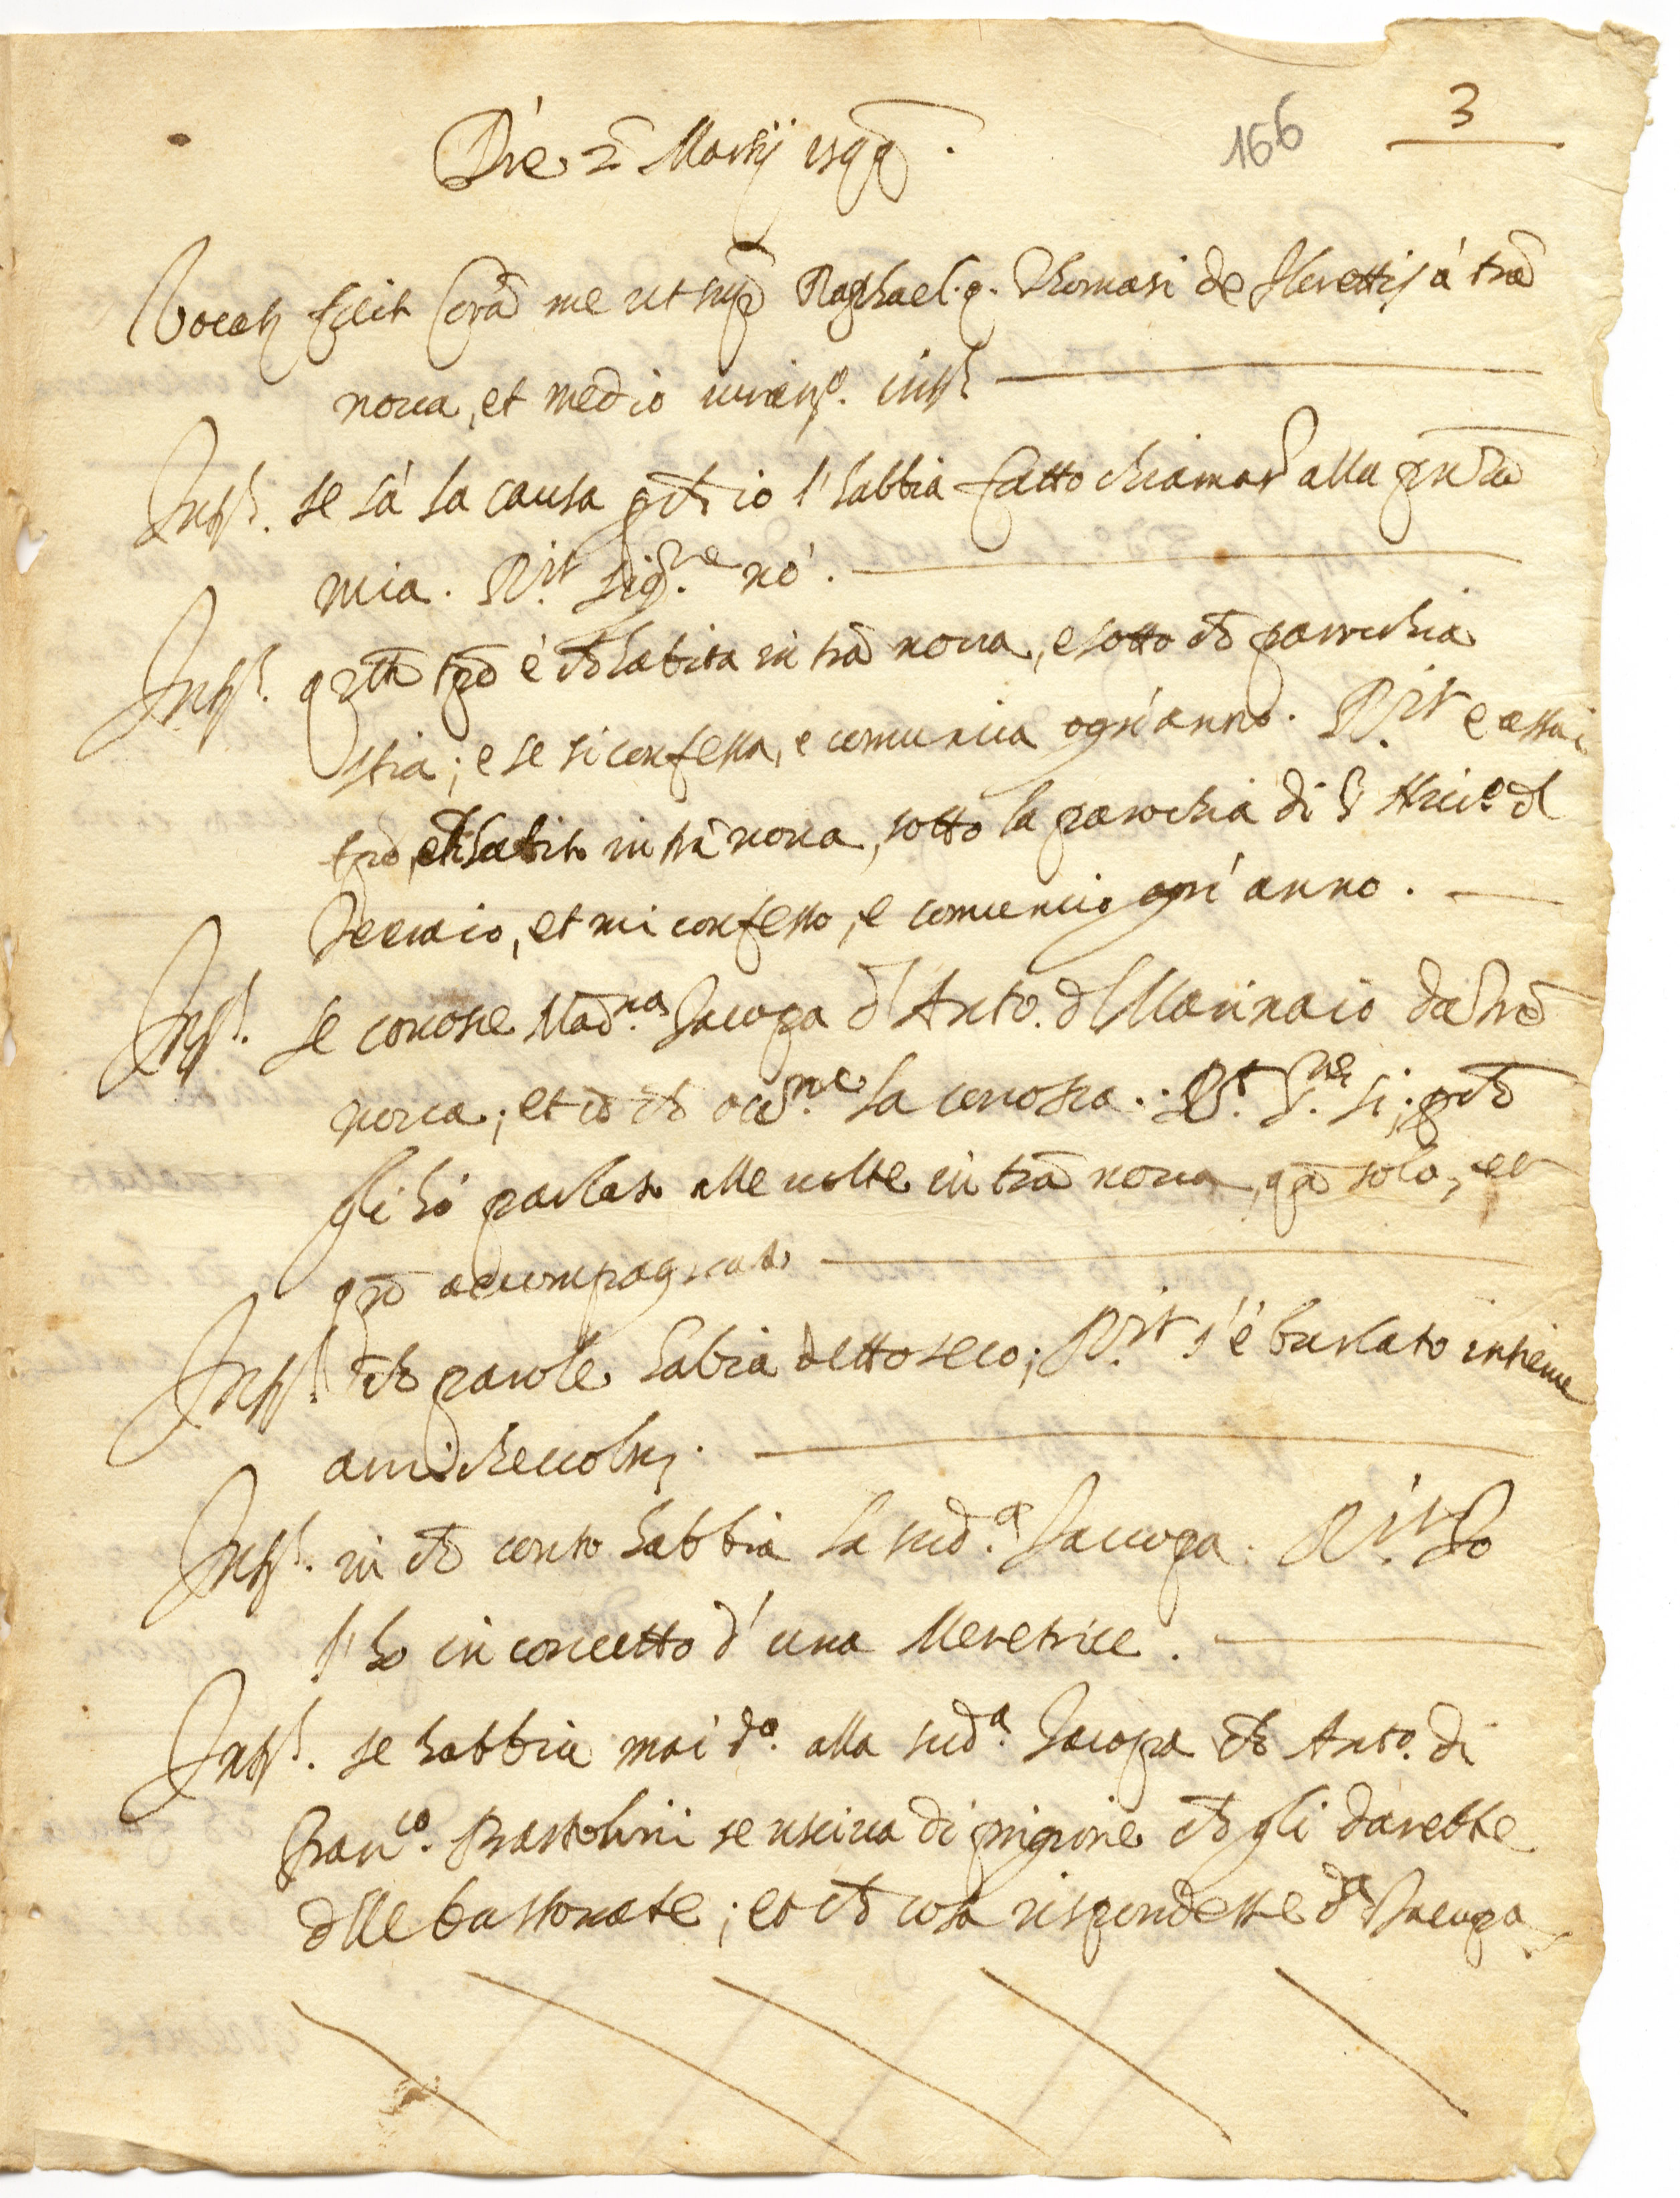 3
166
Die 2ª Martij 1599.
Vocatus fuit Corā me ut supª Raphael. q. Thomasi de à trā
nova, et medio iur.to. Intˢ.
Intˢ. se sà la causa pchē io l'habbia fatto chiamar alla pñza
mia. R.it Sig.re nò.
Intˢ. qtō tpō è chē habita in trā nova, e sotto chē parochia
stia; e se si confessa, e comunica ogn'anno. R.it e assai
tpō, chē habito in trā nova, sotto la parochia di S. del
, et mi confesso, e comunico ogni anno.
Intˢ. se conosce Mad.na Jacopa d'Anto. del Marinaio da trā
nova; et cō chē occ.ne la conosca. R.t S.re si; pchē
gli hò parlato alle volte in trā nova, qñ sola, et
qñ accompagnata
Intˢ. chē parole habia detto seco; R.it s'è burlato insieme
Intˢ. in chē conto habbia la sud.a Jacopa. R.it Io
l'ho in concetto d'una Meretrice.
Intˢ. se habbia mai d.o alla sud.a Jacopa chē Anto. di
Fran.co Bartolini se usciva di prigione chē gli darebbe
delle bastonate; et chē cosa rispondesse d.a Jacopa